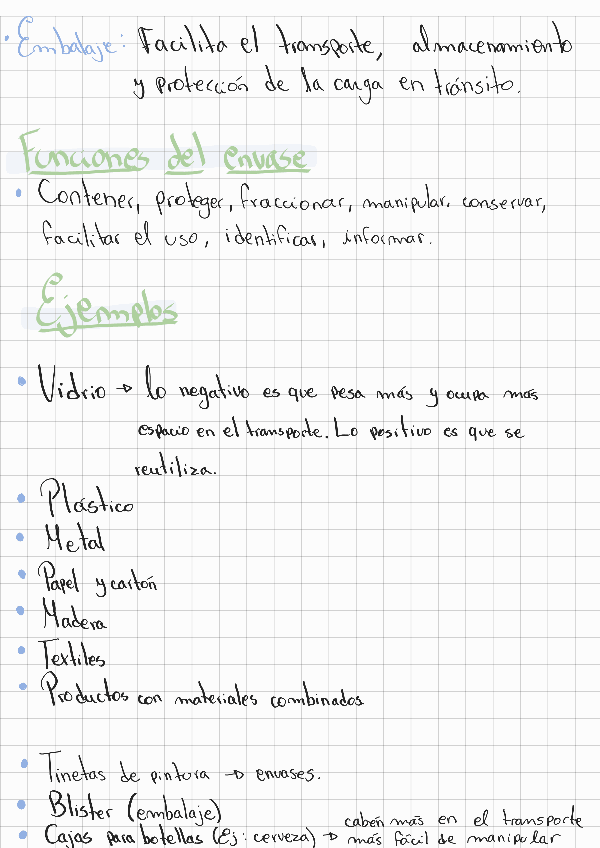 • Embalaje: Facilita el transporte, almacenamiento
y protección de la carga en tránsito.
Funciones del envase
• Contener, proteger, fraccionar, manipular, conservar,
facilitar el uso, identificar, informar.
Ejemplos
• Vidrio → lo negativo es que pesa más y ocupa más
espacio en el transporte. Lo positivo es que se
reutiliza.
• Plástico
• Metal
• Papel y cartón
• Madera
• Textiles
• Productos con materiales combinados
• Tinetas de pintura → envases.
• Blister (embalaje)
caben más en el transporte
• Cajas para botellas (Ej: cerveza) → más fácil de manipular